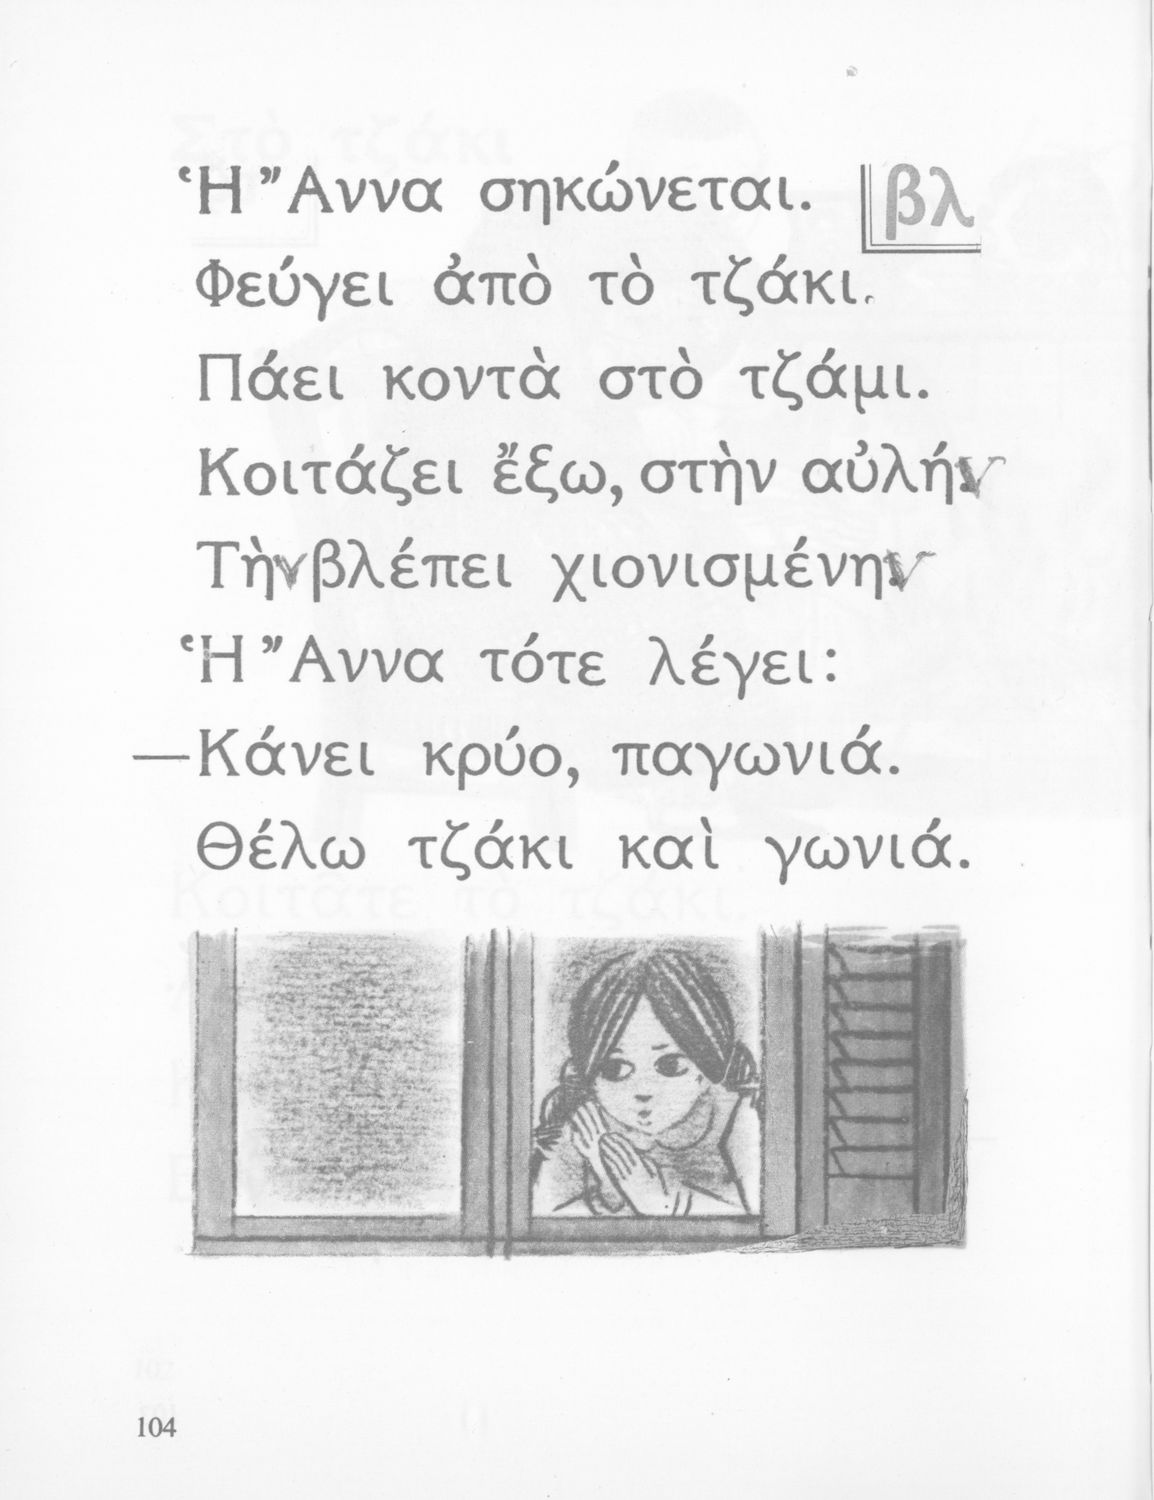 Ἡ Ἄννα σηκώνεται.
βλ
Φεύγει ἀπὸ τὸ τζάκι.
Πάει κοντὰ στὸ τζάμι.
Κοιτάζει ἔξω, στὴν αὐλήν
Τὴν βλέπει χιονισμένην
Ἡ Ἄννα τότε λέγει:
—Κάνει κρύο, παγωνιά.
Θέλω τζάκι καὶ γωνιά.
104